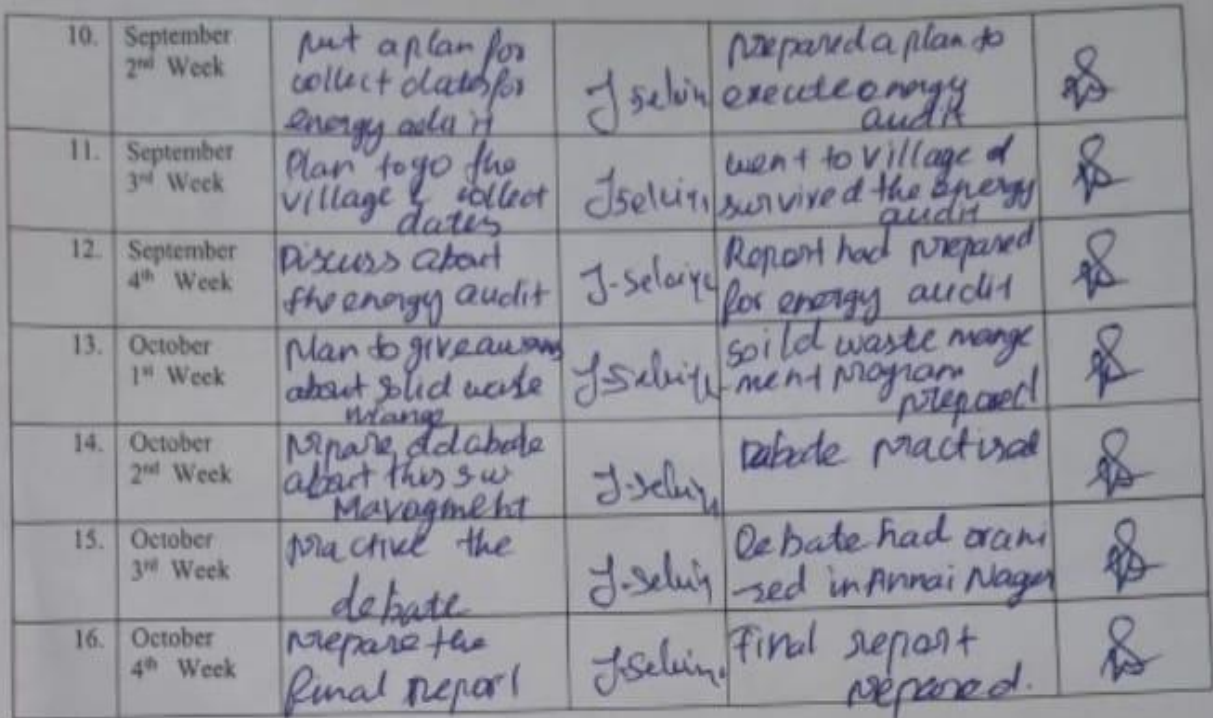 10. September 2nd Week
put a plan for
collect dates for
energy
J selvin
prepared a plan to
execute energy
audit
11. September 3rd Week
Plan to go the
village & collect
dates
J selvin
went to village &
survived the energy
audit
12. September 4th Week
Discuss about
the energy audit
Report had prepared
for energy audit
13. October 1st Week
plan to give
about solid waste
mange
soild waste mange
ment program
prepared
14. October 2nd Week
prepare
about this sw
Mavagment
Debate practised
15. October 3rd Week
practive the
debate
J-selvin
Debate had orani
-sed in Annai Nager
16. October 4th Week
prepare the
final report
J-selvin
final report
prepared.